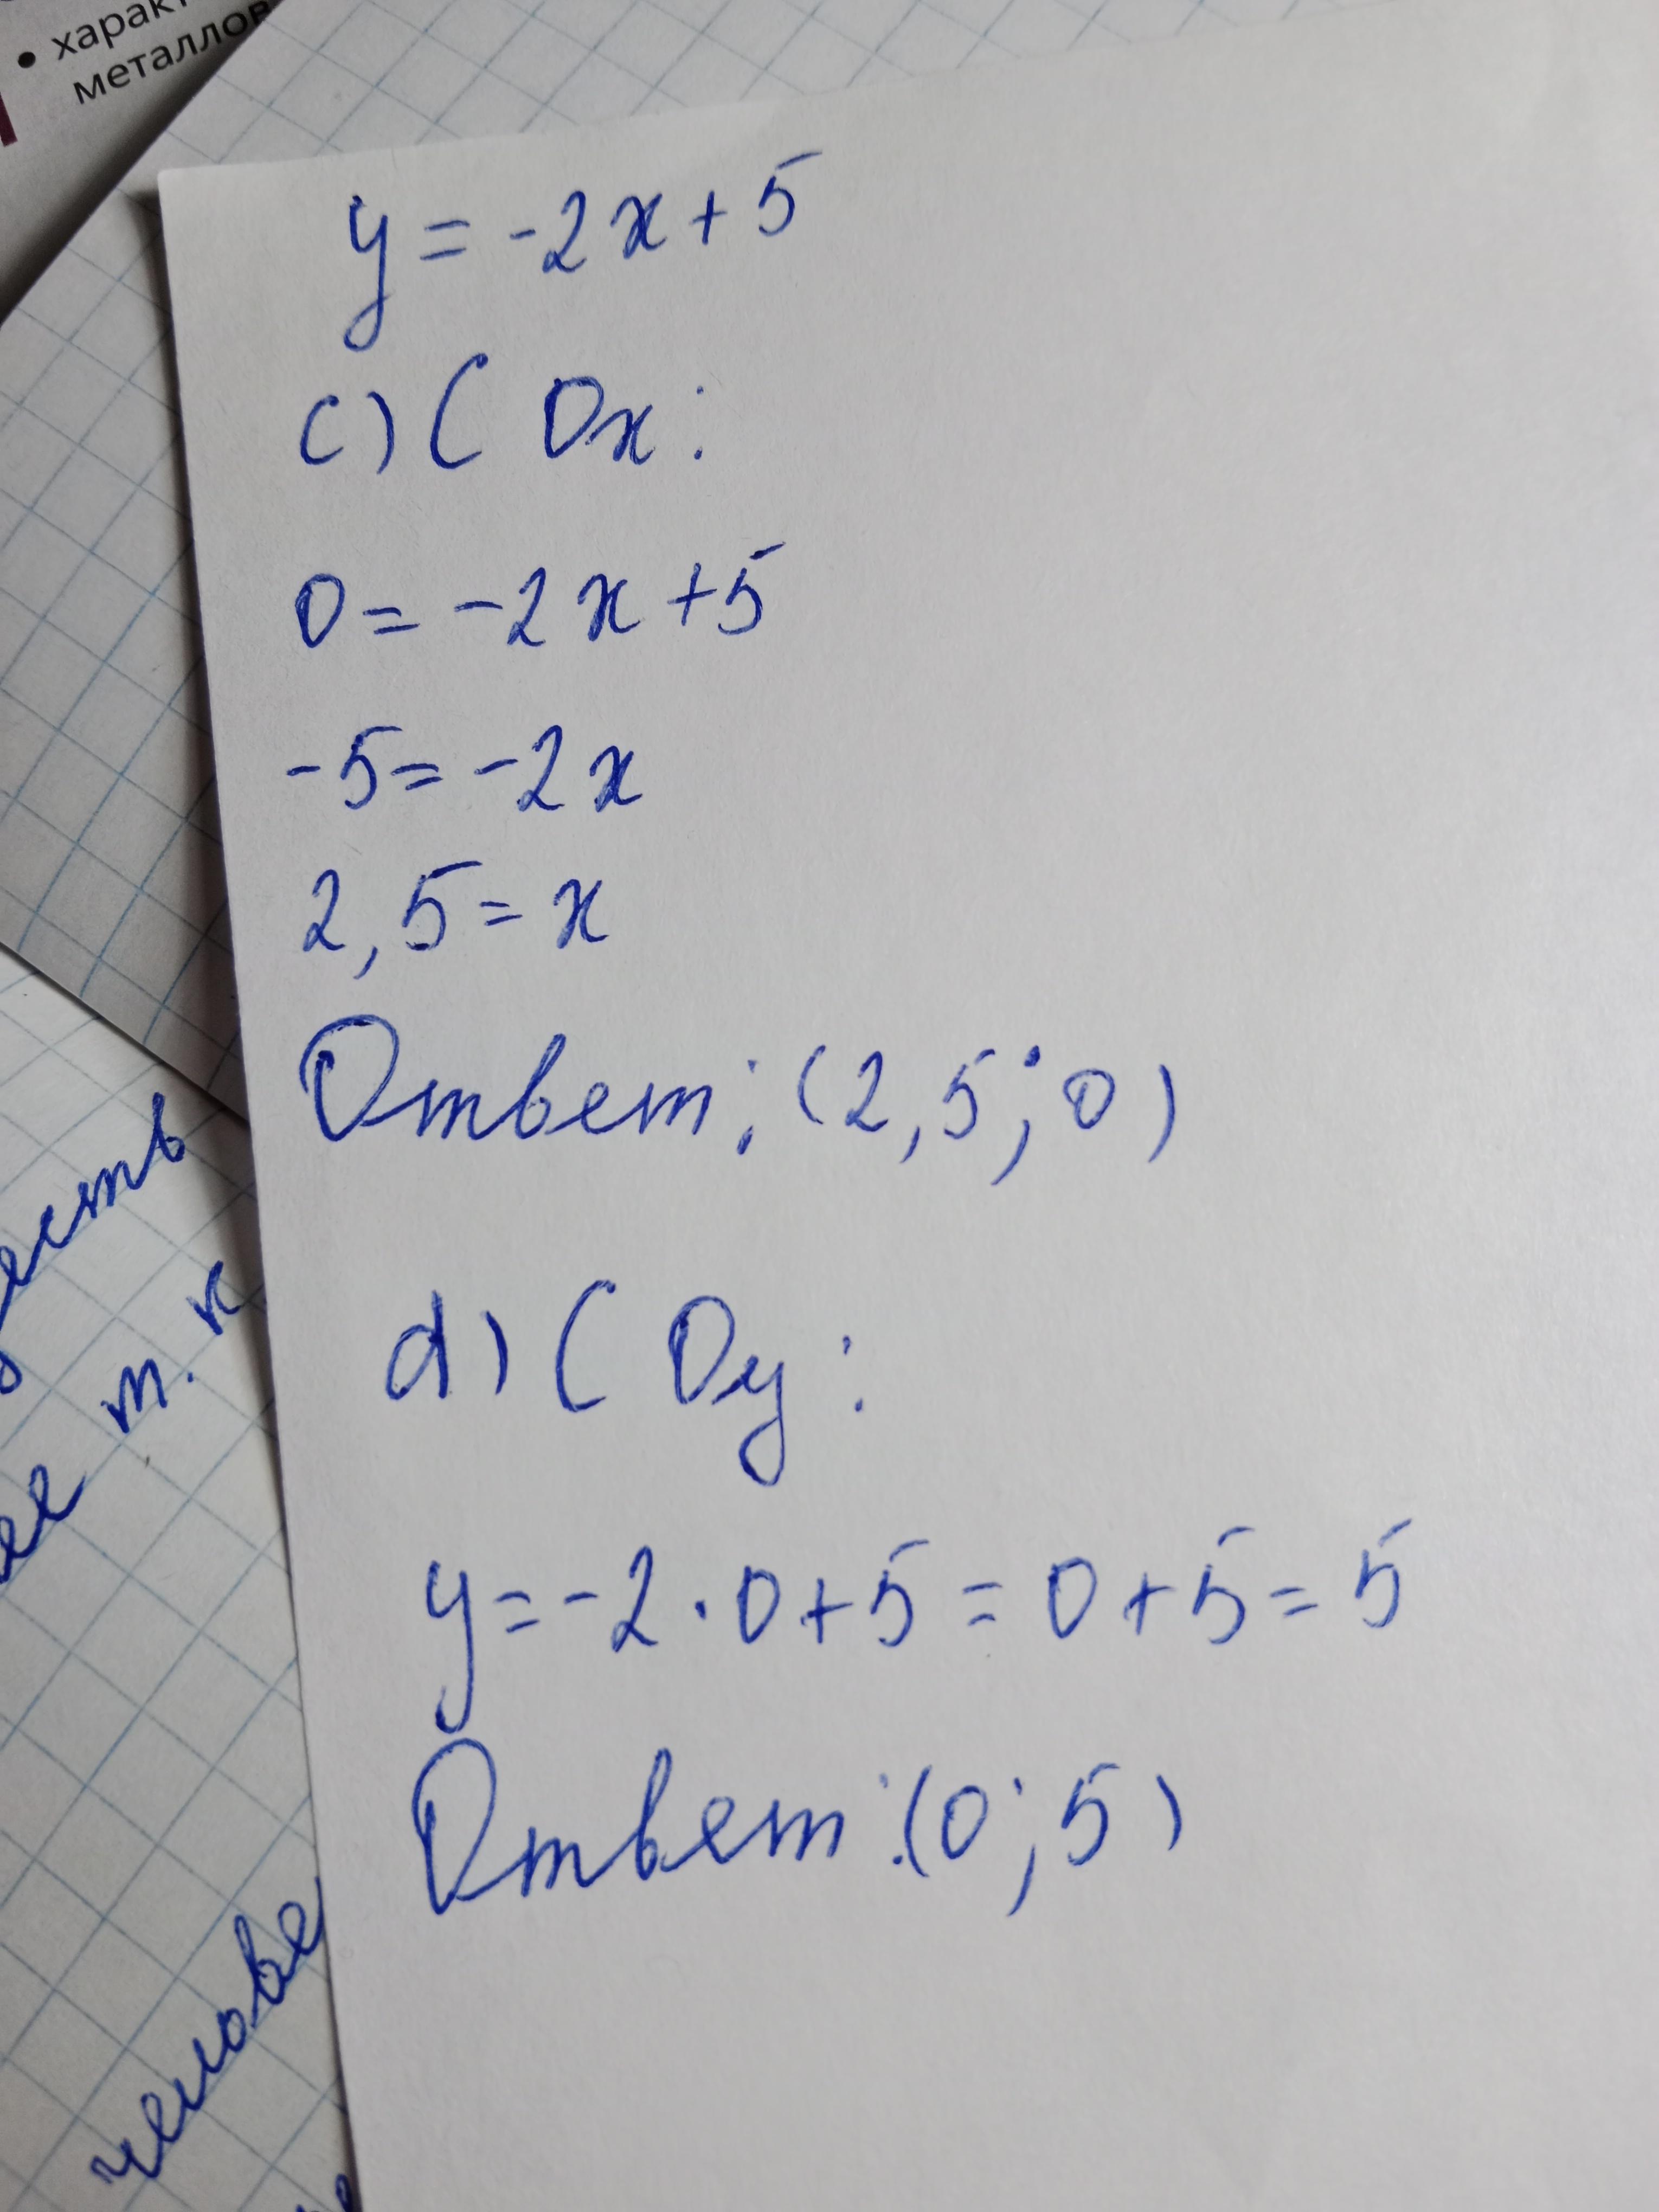 • характ
металлов
y = -2x + 5
c) С Ox:
0 = -2x + 5
-5 = -2x
2,5 = x
Ответ: (2,5; 0)
d) С Oy:
y = -2 · 0 + 5 = 0 + 5 = 5
Ответ: (0; 5)
есть
т. к
челове